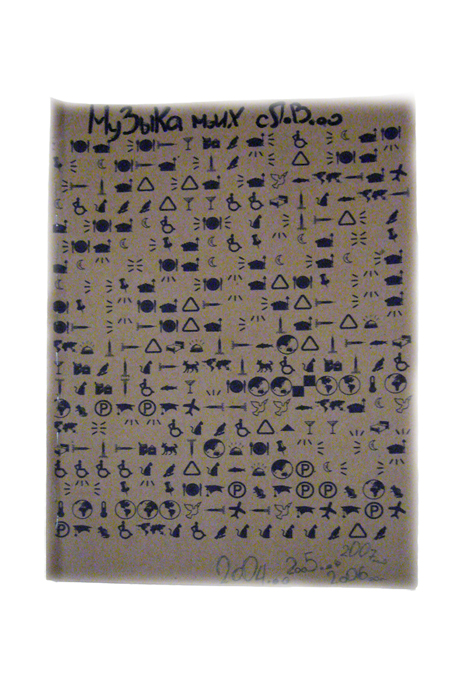 МуЗыКа моих сЛ.В...
2007...
2004... 2005... 2006...